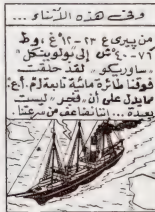 وفى هذه الأثناء...
من بيرى غ ٢٣-١٢°غ، وظ
٧٦-٤٠°ش إلى بولوينكل
"ساوريكو" لقد حلقت
فوقنا طائرة مائية تابعة لم.أ.ع.
مما يدل على أن "فجر" ليست
بعيدة... إننا نضاعف من سرعتنا.